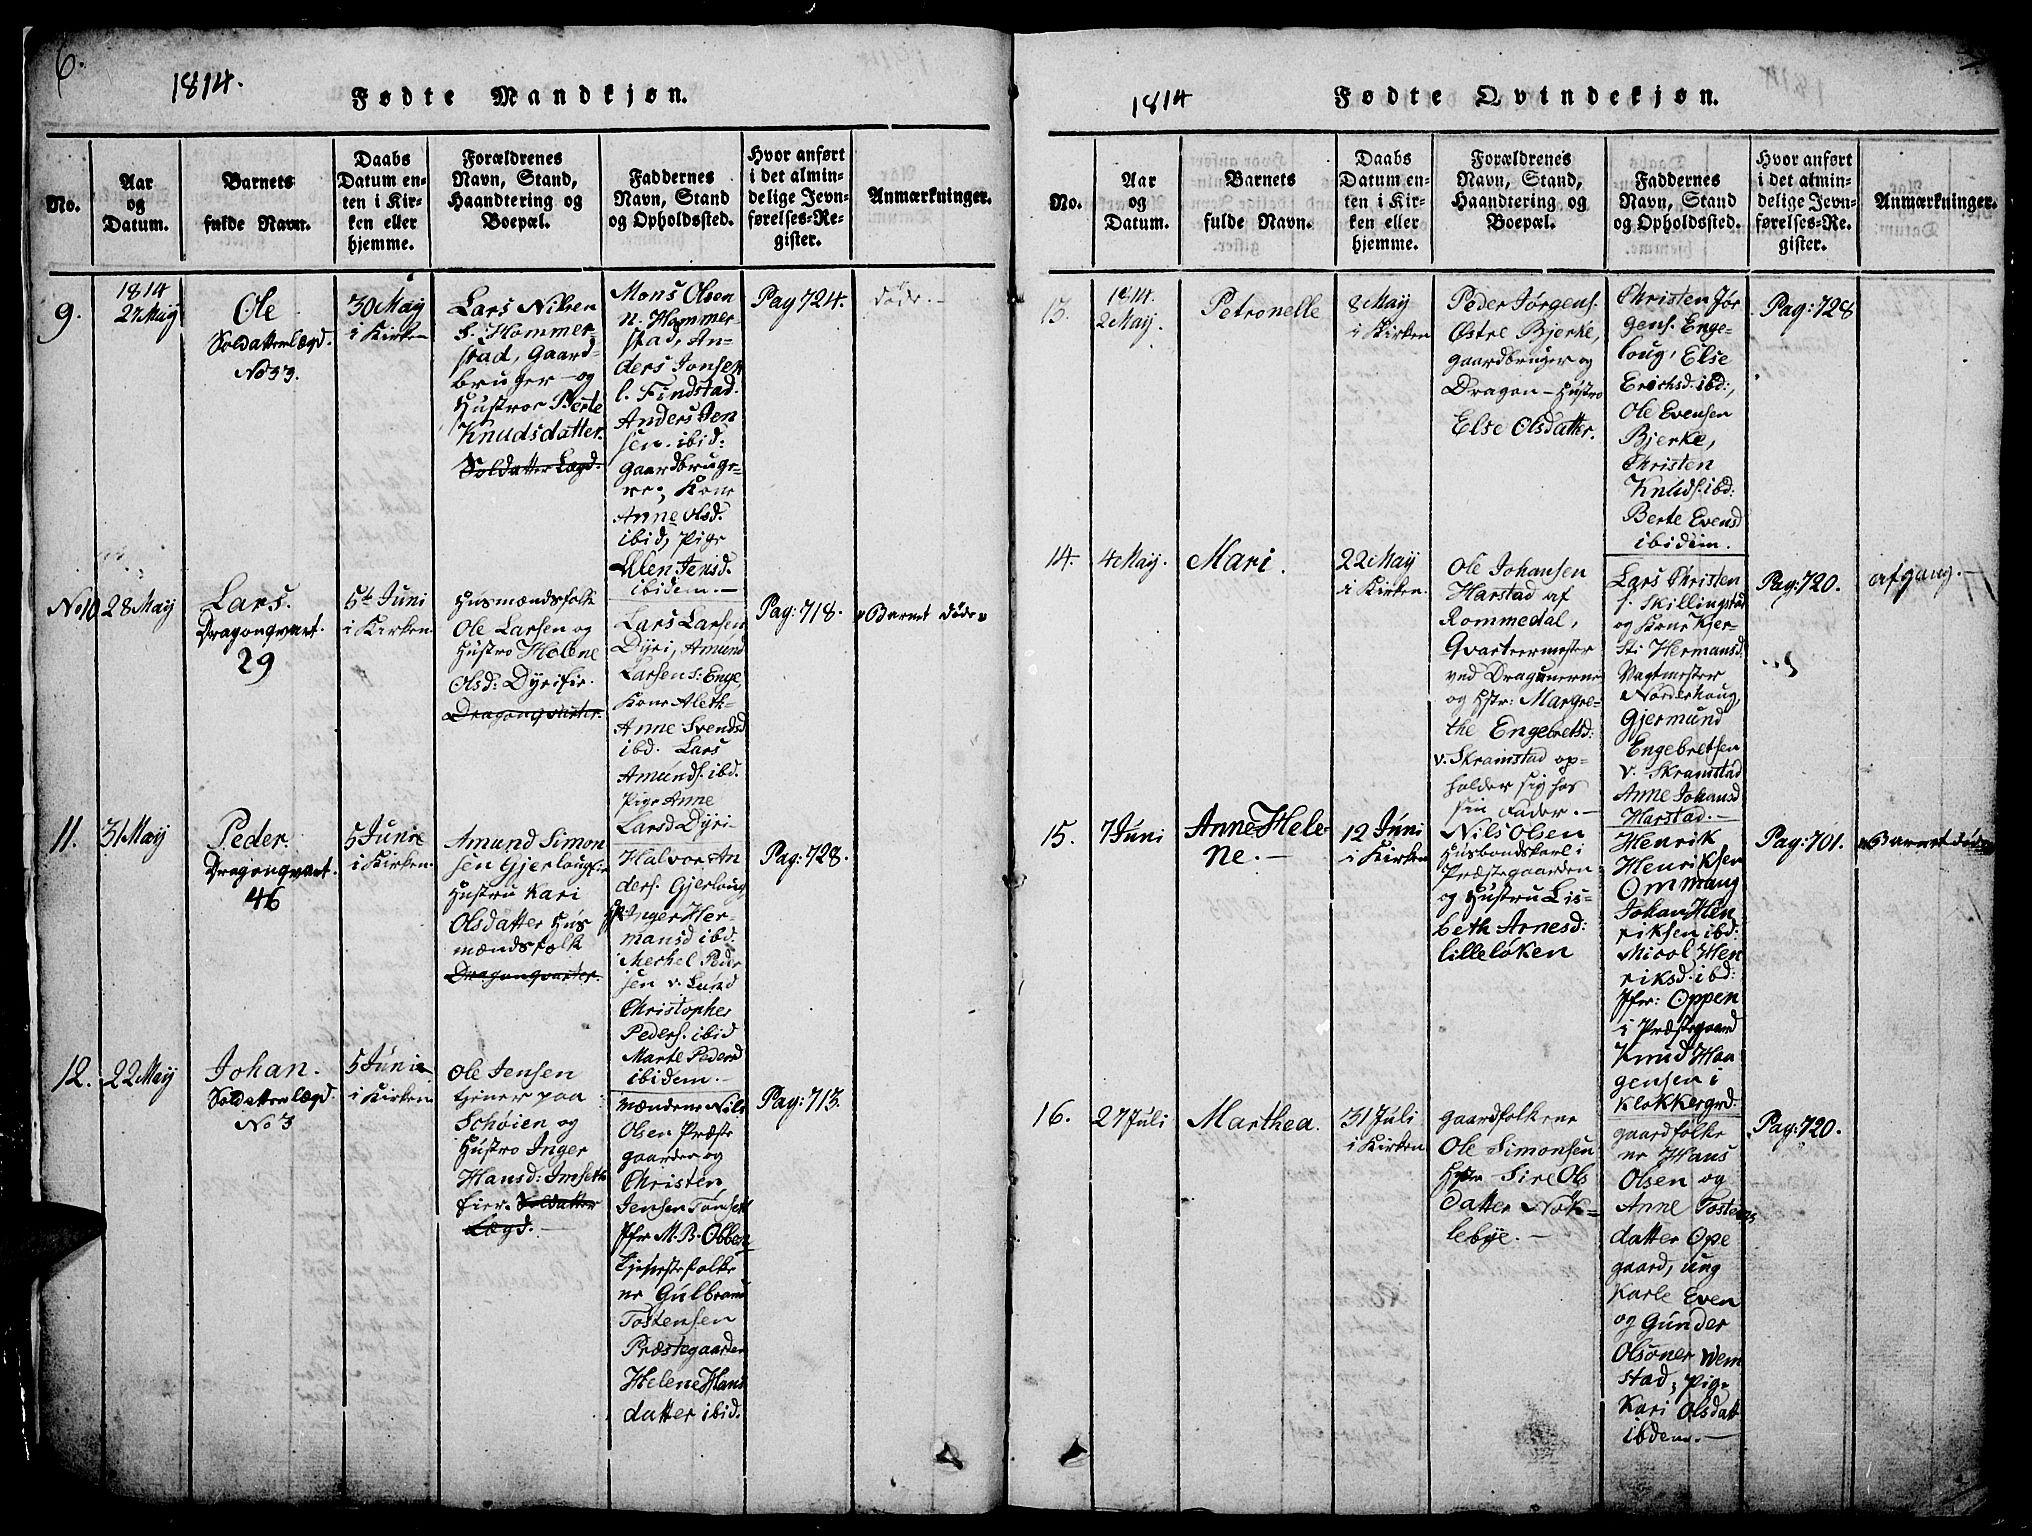 6.
1814.
Fødte Mandkjøn.
No.
Aar
og
Datum.
Barnets
fulde Navn.
Daabs
Datum en-
ten i Kir-
ken eller
hjemme.
Forældrenes
Navn, Stand,
Haandtering og
Boepæl.
Faddernes
Navn, Stand
og Opholdssted.
Hvor anført
i det almin-
delige Jevn-
førelses-Re-
gister.
Anmærkninger.
9.
1814
27 May
Ole
Soldatterlægd.
No 33.
30 May
i Kirken
Lars Nilsen
S: Hommer-
stad, Gaard-
bruger og
Hustroe Berte
Knudsdatter.
Soldatter Lægd.
Mons Olsen
n. Hommer-
stad, An-
ders Jonsen
l. Findstad.
Anders Jen
sen. ibid:
gaardbruge-
re; Kone
Anne Olsd.
ibid, Pige
Ellen Jensd.
ibidem.
Pag 724.
døde.
No 10
28 May
Lars.
Dragonqvart.
29
5te Juni
i Kirken
Husmændsfolk
Ole Larsen og
Hustro Helene
Olsd: Dyrifie.
Dragonqvarter.
Lars Larsen
Dyri, Amund
Larsen s: Enge,
Kone Aleth
Anne Svendsd
ibd. Lars
Amunds. ibd.
Pige Anne
Larsd Dyri
Pag: 718.
"Barnet døde"
11.
31 May
Peder
Dragonqvart.
46
5 Junie
i Kirken
Amund Simon
sen Gjerlougfie
Hustru Kari
Olsdatter Hus
mændsfolk
Dragonqvarter.
Halvor An
ders. Gjerloug
Hst Inger Her-
mansd ibd.
Merkel Peder
sen v. Lund
Christopher
Peders. ibid
Marte Pedersd
ibidem.
Pag: 728.
12.
22 May
Johan.
Soldatterlægd.
No 3
5 Junie
i Kirken
Ole Jensen
tjener paa
Schøien og
Hustro Inger
Hansd: Imseth
fier. Soldatter
Lægd.
Mændene Nils
Olsen Præste
gaarden og
Christen
Jensen Tomset
Jfr M. B. Obben
Tjenestefolke
ne Gulbrand
Tostensen
Præstegaarden
Helene Hans
datter ibid.
Pag: 713.
1814
Fødte Qvindekjøn.
No.
Aar
og
Datum.
Barnets
fulde Navn.
Daabs
Datum en-
ten i Kir-
ken eller
hjemme.
Forældrenes
Navn, Stand,
Haandtering og
Boepæl.
Faddernes
Navn, Stand
og Opholdssted.
Hvor anført
i det almin-
delige Jevn-
førelses-Re-
gister.
Anmærkninger.
13.
1814.
2 May.
Petronelle
8 May
i Kirken
Peder Jørgens.
Østre Bjerke,
gaardbruger og
Dragon - Hustro
Else Olsdatter.
Christen Jør
gens. Enge-
loug, Else
Erichsd. ibd:,
Ole Evensen
Bjerke,
Christen
Knuds. ibd:
Berte Evensd
ibidem.
Pag: 728
14.
4 May.
Mari.
22 May
i Kirken.
Ole Johansen
Harstad af
Rommedal,
Qvarteermester
ved Dragunerne
og Hstr: Margre-
the Engebretsd:
v. Skramstad op-
holder sig hos
sin Fader.
Lars Christen
s. Skillingstad
og Kone Kjer-
sti Hermansd.
Vagtmester
Norderhoug,
Gjermund
Engebretsen
v. Skramstad
Anne Johansd
Harstad.
Pag: 720.
afgang.
15.
7 Juni
Anne Hele-
ne.
12 Juni
i Kirken
Nils Olsen
Husbondskarl i
Præstegaarden
og Hustru Lis-
beth Arnesd:
Lilleløken
Henrik
Henriksen
Ommang
Johan Hen
riksen ibd:
Micol Hen
riksd. ibd:
Jfr: Oppen
i Præstegaard
Knud Haa
gensen i
Klokkergrd:
Pag: 701.
"Barnet døde
16.
27 Juli
Marthea.
31 Juli
i Kirken
gaardfolkene
Ole Simonsen
Hstr Sire Ols
datter Nøk-
lebye.
gaardfolke
ne Hans
Olsen og
Anne Tostens
datter Ope
gaard, ung
Karle Even
og Gunder
Olsøner Wem
stad; Pige
Kari Olsdatt
ibdem.
Pag: 720.